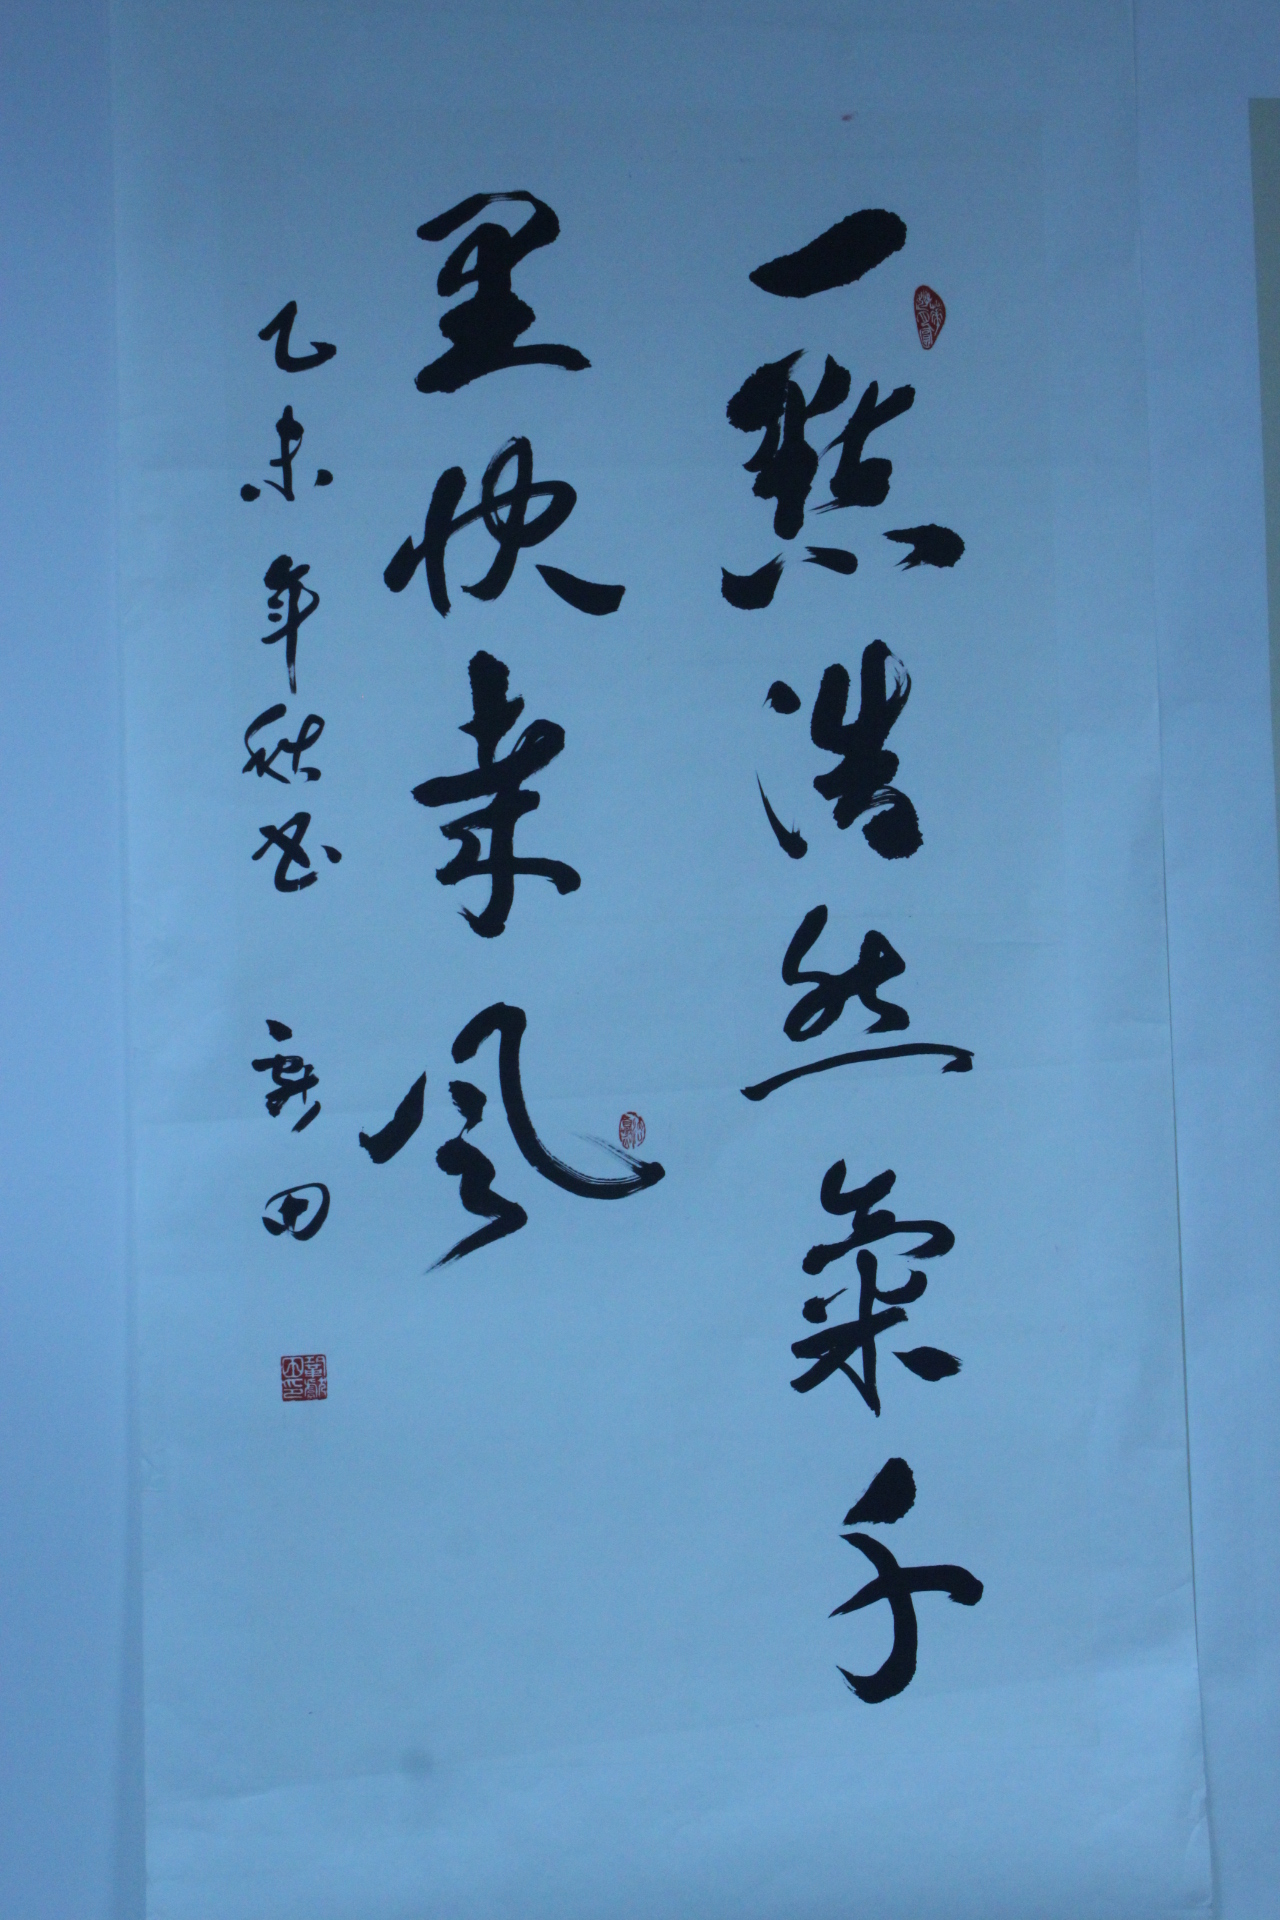 一點浩然氣千
里快哉風
乙未年秋書 獻田